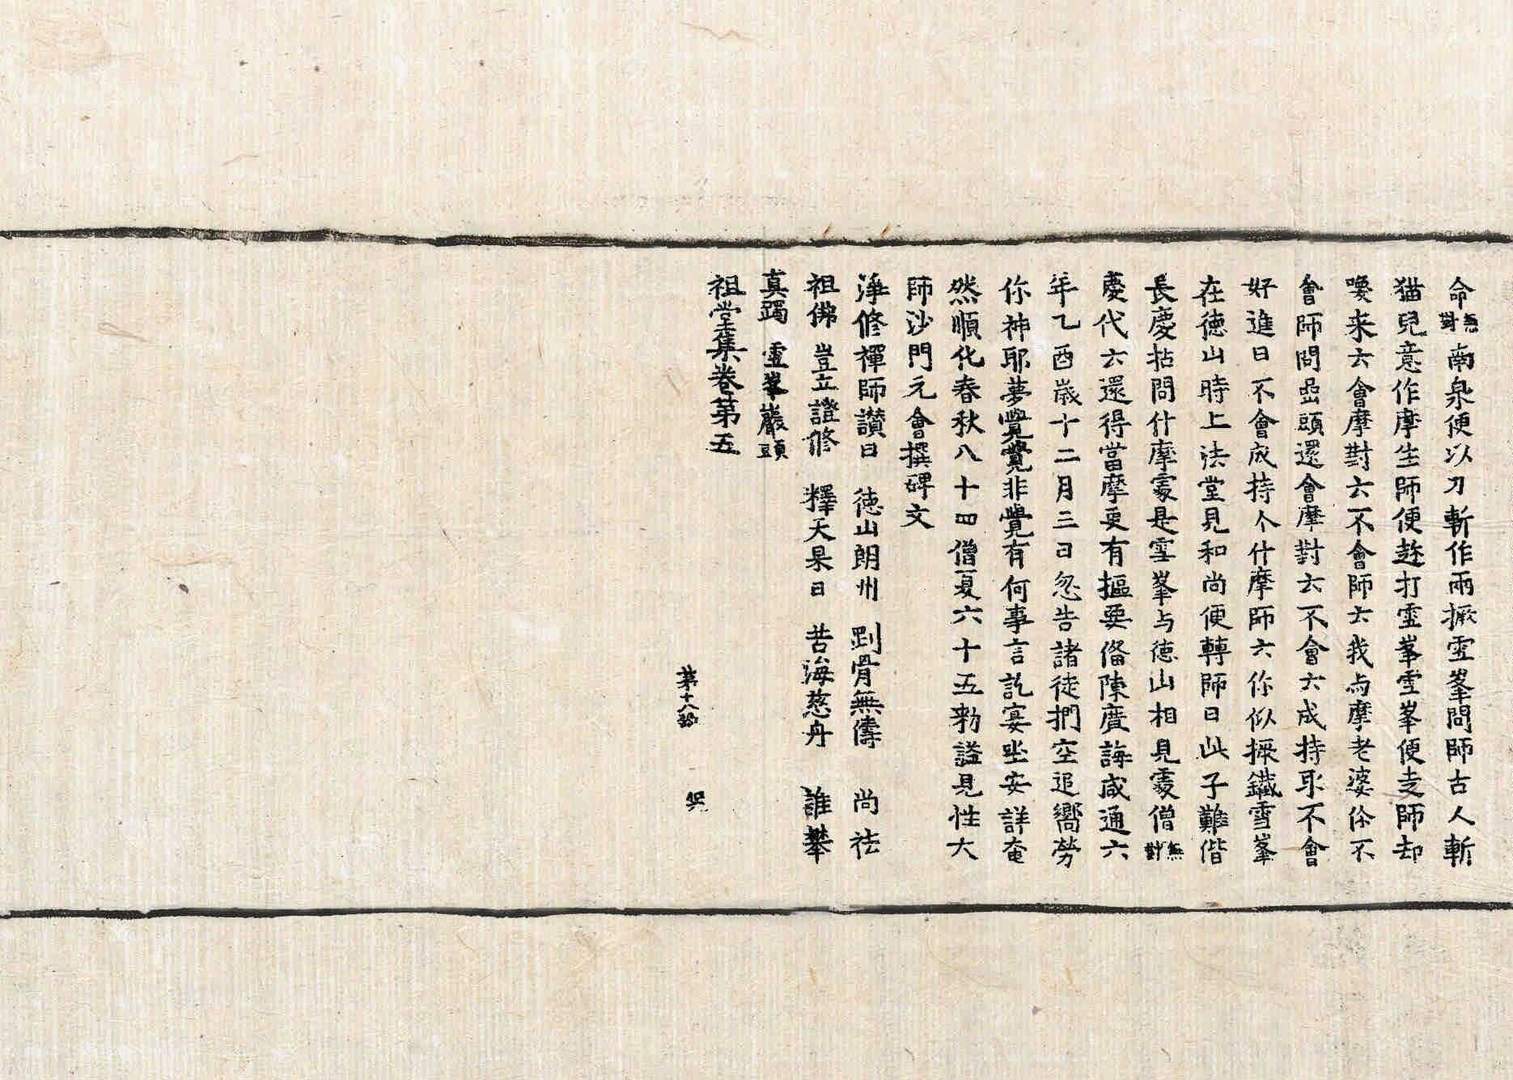 命無對南泉便以刀斬作兩橛雪峯問師古人斬
猫兒意作摩生師便趂打雪峯雪峯便走師却
喚来云會摩對云不會師云我与摩老婆你不
會師問嵒頭還會摩對云不會云成持取不會
好進曰不會成持个什摩師云你似橛鐵雪峯
在德山時上法堂見和尚便轉師曰此子難偕
長慶拈問什摩處是雪峯与德山相見處僧無對
慶代云還得當摩更有摳要俻陳廣誨咸通六
年乙酉歲十二月三日忽告諸徒捫空追嚮勞
你神耶夢覺覺非覺有何事言訖宴坐安詳奄
然順化春秋八十四僧夏六十五勑謚見性大
師沙門元會撰碑文
淨修禪師讚曰 德山朗州 剛骨無儔 尚祛
祖佛 豈立證修 釋天杲日 苦海慈舟 誰攀
真躅 雪峯巖頭
祖堂集卷第五
第十八張